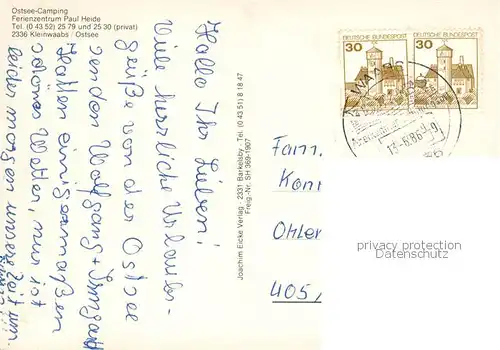 Ostsee-Camping
Ferienzentrum Paul Heide
Tel. (0 43 52) 25 79 und 25 30 (privat)
2336 Kleinwaabs / Ostsee
Hallo Ihr Lieben!
Viele herrliche Urlaubs-
grüße von der Ostsee
senden Wolfgang + Irmgard
Hatten einigermaßen
schönes Wetter, nur ist
leider morgen unsere Zeit um.
Joachim Eicke Verlag - 2331 Barkelsby - Tel. (0 43 51) 8 18 47
Freig.-Nr. SH 369-1907
30 DEUTSCHE BUNDESPOST
30 DEUTSCHE BUNDESPOST
13.-8.86
Fam.
Kon
Ohler
405
privacy protection
Datenschutz